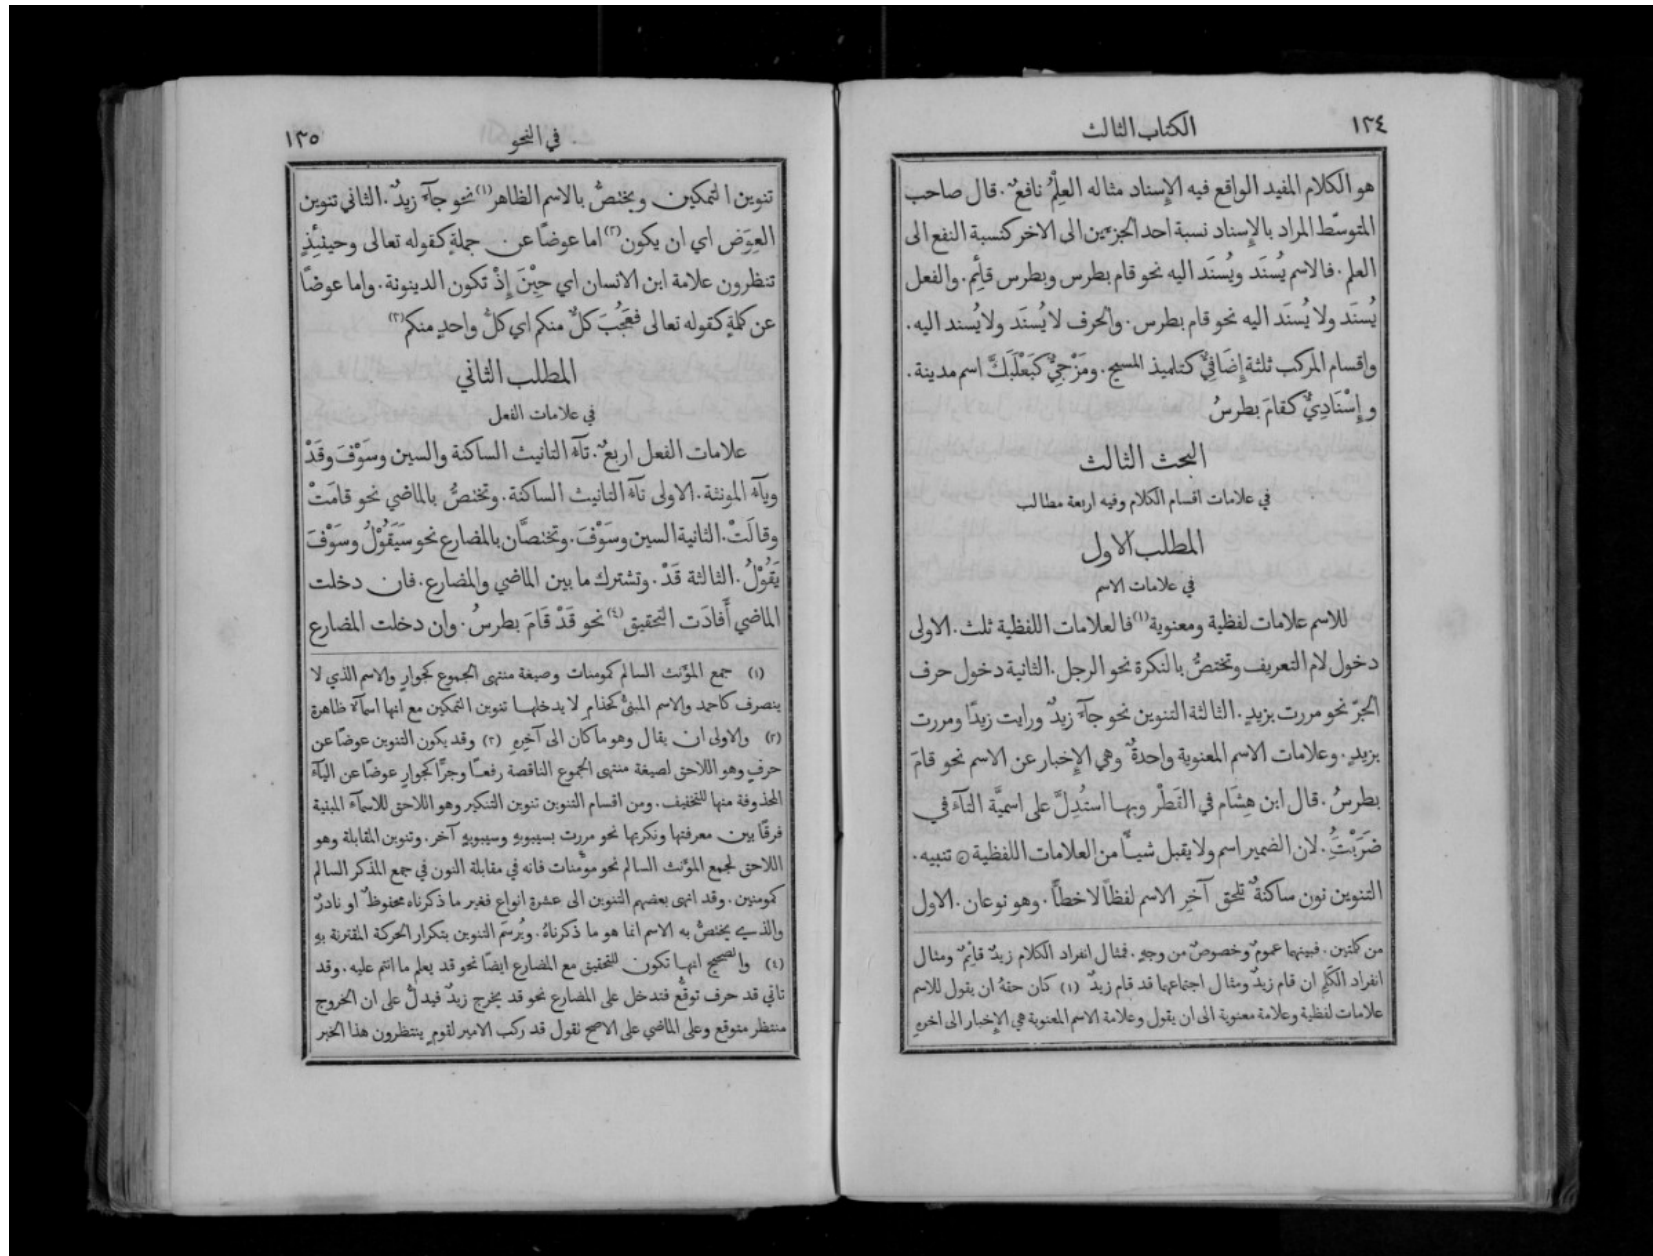 ١٢٤
الكتاب الثالث
هو الكلام المفيد الواقع فيه الإِسناد مثاله العِلْمُ نافعٌ . قال صاحب
المتوسّط المراد بالإِسناد نسبة احد الجزءين الى الاخر كنسبة النفع الى
العلم . فالاسم يُسنَد ويُسنَد اليه نحو قام بطرس وبطرس قائِم . والفعل
يُسنَد ولا يُسنَد اليه نحو قام بطرس . والحرف لا يُسنَد ولا يُسند اليه .
واقسام المركب ثلثة إِضَافِيٌّ كتلميذ المسيح . ومَزْجِيٌّ كَبَعْلَبَكَّ اسم مدينة .
و إِسْنَادِيٌّ كقامَ بطرسُ
البحث الثالث
في علامات اقسام الكلام وفيه اربعة مطالب
المطلب الاول
في علامات الاسم
للاسم علامات لفظية ومعنوية (١) فالعلامات اللفظية ثلث . الاولى
دخول لام التعريف وتختصُّ بالنكرة نحو الرجل . الثانية دخول حرف
الجرّ نحو مررت بزيدٍ . الثالثة التنوين نحو جآءَ زيدٌ ورايت زيدًا ومررت
بزيدٍ . وعلامات الاسم المعنوية واحدةٌ وهي الإِخبار عن الاسم نحو قامَ
بطرسُ . قال ابن هِشَام في القَطْر وبها استُدِلَّ على اسميَّة التآء في
ضَرَبْتُ . لان الضمير اسم ولا يقبل شيـًٔا من العلامات اللفظية ۞ تنبيه .
التنوين نون ساكنةٌ تلحق آخِر الاسم لفظًا لا خطأً . وهو نوعان . الاول
من كلمتين . فبينهما عمومٌ وخصوصٌ من وجهٍ . فمثال انفراد الكلام زيدٌ قايْمٌ ومثال
انفراد الكَلِم ان قام زيدٌ ومثال اجتماعهما قد قام زيدٌ (١) كان حقهُ ان يقول للاسم
علامات لفظية وعلامة معنوية الى ان يقول وعلامة الاسم المعنوية هي الإِخبار الى اخرهِ
في النحو
١٢٥
تنوين التمكين ويختصُّ بالاسم الظاهر (١) نحو جآءَ زيدٌ . الثاني تنوين
العِوَض اي ان يكون (٢) اما عوضًا عن جملةٍ كقوله تعالى وحينئِذٍ
تنظرون علامة ابن الانسان اي حِيْنَ إِذْ تكون الدينونة . واما عوضًا
عن كلمةٍ كقوله تعالى فعَجُبَ كلٌّ منكم اي كلُّ واحدٍ منكم (٣)
المطلب الثاني
في علامات الفعل
علامات الفعل اربعٌ . تآءُ التانيث الساكنة والسين وسَوْفَ وقَدْ
ويآءُ المونثة . الاولى تآءُ التانيث الساكنة . وتختصُّ بالماضي نحو قامَتْ
وقالَتْ . الثانية السين وسَوْفَ . وتختصَّان بالمضارع نحو سَيَقُوْلُ وسَوْفَ
يَقُوْلُ . الثالثة قَدْ . وتشترك ما بين الماضي والمضارع . فان دخلت
الماضي أَفادَت التحقيق (٤) نحو قَدْ قَامَ بطرسُ . وان دخلت المضارع
(١) جمع المؤَنث السالم كمومنات وصيغة منتهى الجموع كجوارٍ والاسم الذي لا
ينصرف كاحمد والاسم المبنيّ كحذامِ لا يدخلها تنوين التمكين مع انها اسمآءٌ ظاهرة
(٢) والاولى ان يقال وهو ما كان الى آخرِهِ (٣) وقد يكون التنوين عوضًا عن
حرفٍ وهو اللاحق لصيغة منتهى الجموع الناقصة رفعـًا وجرًّا كجوارٍ عوضًا عن اليآءِ
المحذوفة منها للتخفيف . ومن اقسام التنوين تنوين التنكير وهو اللاحق للاسمآءِ المبنية
فرقًا بين معرفتها ونكرتها نحو مررت بسيبويهِ وسيبويهٍ آخر . وتنوين المقابلة وهو
اللاحق لجمع المؤَنث السالم نحو مؤْمنات فانه في مقابلة النون في جمع المذكر السالم
كمومنين . وقد انهى بعضهم التنوين الى عشرة انواع فغير ما ذكرناه محفوظٌ او نادرٌ
والذي يختصُّ به الاسم انما هو ما ذكرناهُ . ويُرسَم التنوين بتكرار الحركة المقترنة بهِ
(٤) والصحيح انها تكون للتحقيق مع المضارع ايضًا نحو قد يعلم ما انتم عليه . وقد
تاتي قد حرف توقُّع فتدخل على المضارع نحو قد يخرج زيدٌ فيدلُّ على ان الخروج
منتظر متوقع وعلى الماضي على الاصح تقول قد ركب الامير لقومٍ ينتظرون هذا الخبر